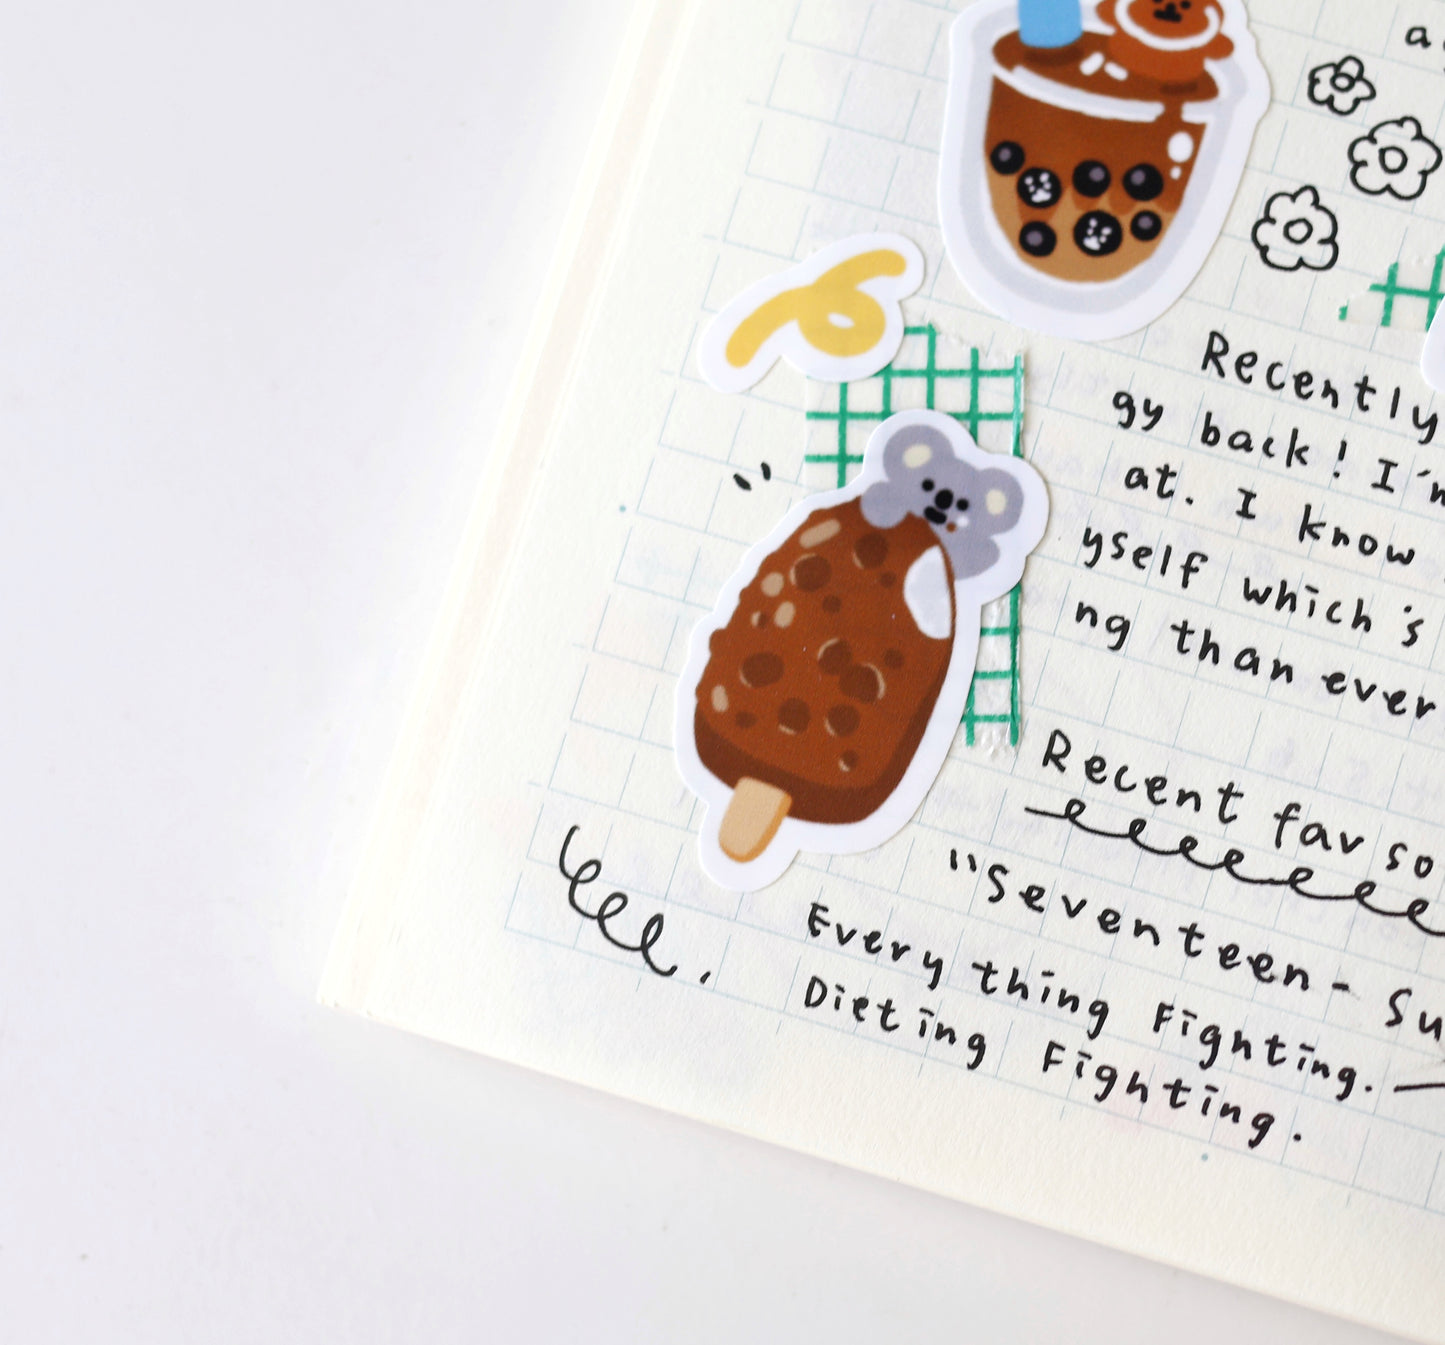 Recently
gy back! I'm
at. I know
yself which's
ng than ever
Recent fav so
"Seventeen - Su
Everything Fighting.
Dieting Fighting.